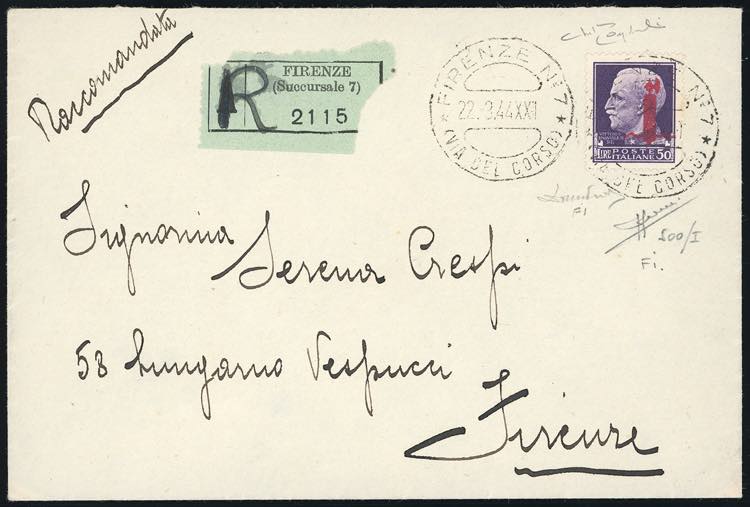 Raccomandata
R
FIRENZE
(Succursale 7)
2115
* FIRENZE Nº 7 *
22.3.44 XXII
(VIA DEL CORSO)
Nº 7 *
DEL CORSO)
LIRE POSTE 50
ITALIANE
FI
500/I
Fi.
Signorina
Serena Crespi
58 Lungarno Vespucci
Firenze